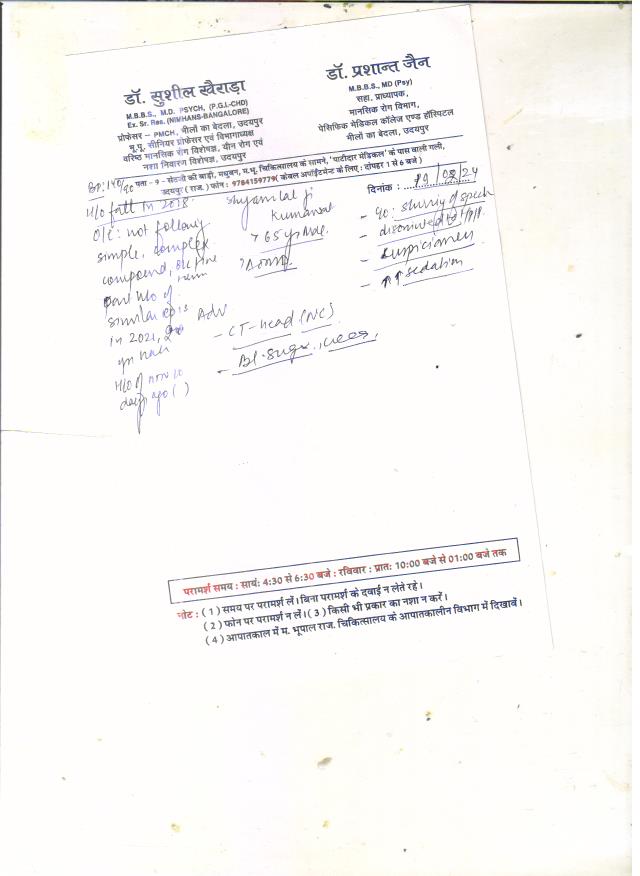 डॉ. सुशील खैराड़ा
M.B.B.S., M.D. PSYCH, (P.G.I.-CHD)
Ex. Sr. Res. (NIMHANS-BANGALORE)
प्रोफेसर – PMCH, भीलों का बेदला, उदयपुर
भू.पू. सीनियर प्रोफेसर एवं विभागाध्यक्ष
वरिष्ठ मानसिक रोग विशेषज्ञ, यौन रोग एवं
नशा निवारण विशेषज्ञ, उदयपुर
डॉ. प्रशान्त जैन
M.B.B.S., MD (Psy)
सहा. प्राध्यापक,
मानसिक रोग विभाग,
पेसिफिक मेडिकल कॉलेज एण्ड हॉस्पिटल
भीलों का बेदला, उदयपुर
पता - 9 - सेठजी की बाड़ी, मधुबन, म.भू. चिकित्सालय के सामने, 'पाटीदार मेडिकल' के पास वाली गली,
उदयपुर ( राज. ) फोन : 9784159779( केवल अपॉईंटमेन्ट के लिए : दोपहर 1 से 6 बजे )
दिनांक : 19/02/24
BP: 140/90
H/o fall in 2018.
O/E: not following
simple, complex
compound,
past H/o of
similar
in 2021,
H/o of
days ago ( )
Shyamlal ji
Kumawat
> 65 yr
- slurring of speech
-
- suspiciousness
- ↑↑ sedation
Adv
- CT-Head (NC)
- Bl. Sugar,
परामर्श समय : सायं: 4:30 से 6:30 बजे : रविवार : प्रात: 10:00 बजे से 01:00 बजे तक
नोट : ( 1 ) समय पर परामर्श लें। बिना परामर्श के दवाई न लेते रहे।
( 2 ) फोन पर परामर्श न लें। ( 3 ) किसी भी प्रकार का नशा न करें।
( 4 ) आपातकाल में म. भूपाल राज. चिकित्सालय के आपातकालीन विभाग में दिखावें।